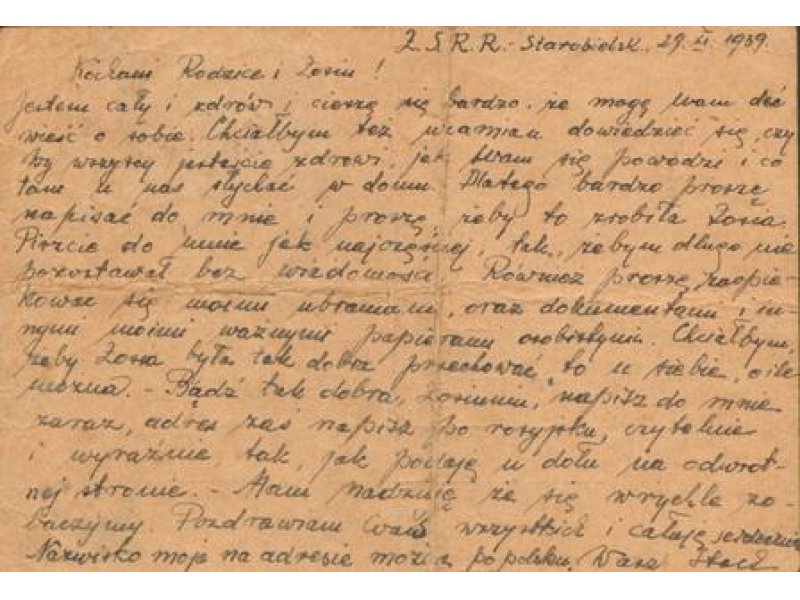 Z.S.R.R. - Starobielsk, 29. XI 1939.
Kochani Rodzice i Zosiu!
Jestem cały i zdrów i cieszę się bardzo, że mogę Wam dać
wieść o sobie. Chciałbym też wzamian dowiedzieć się, czy
Wy wszyscy jesteście zdrowi, jak Wam się powodzi i co
tam u nas słychać w domu. Dlatego bardzo proszę
napisać do mnie i proszę, żeby to zrobiła Zosia.
Piszcie do mnie jak najczęściej, tak, żebym długo nie
pozostawał bez wiadomości. Również proszę zaopie-
kować się moimi ubraniami, oraz dokumentami i in-
nymi moimi ważnymi papierami osobistymi. Chciałbym,
żeby Zosia była tak dobra przechować to u siebie, o ile
można. - Bądź tak dobra, Zosiuniu, napisz do mnie
zaraz, adres zaś napisz po rosyjsku, czytelnie
i wyraźnie tak, jak podaję u dołu na odwrot-
nej stronie. - Mam nadzieję że się wrychle zo-
baczymy. Pozdrawiam Was wszystkich i całuję serdecznie
Nazwisko moje na adresie można po polsku, Wasz